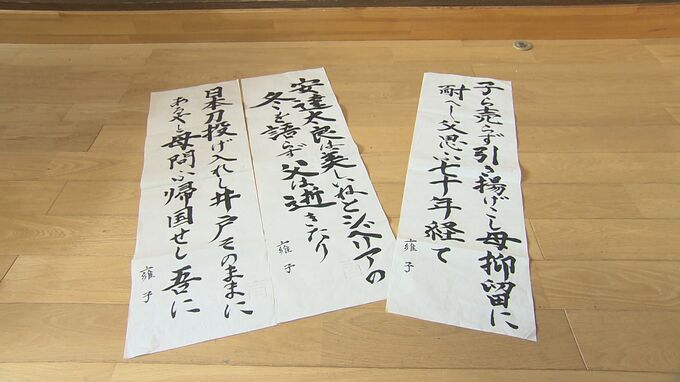 子ら売らず引き揚げこし母抑留に
耐へし父思ふ七十年経て
雍子
安達太良は美しいねとシベリアの
冬を語らず父は逝きたり
雍子
日本刀投げ入れし井戸そのままに
あるやと母問ふ帰国せし吾に
雍子